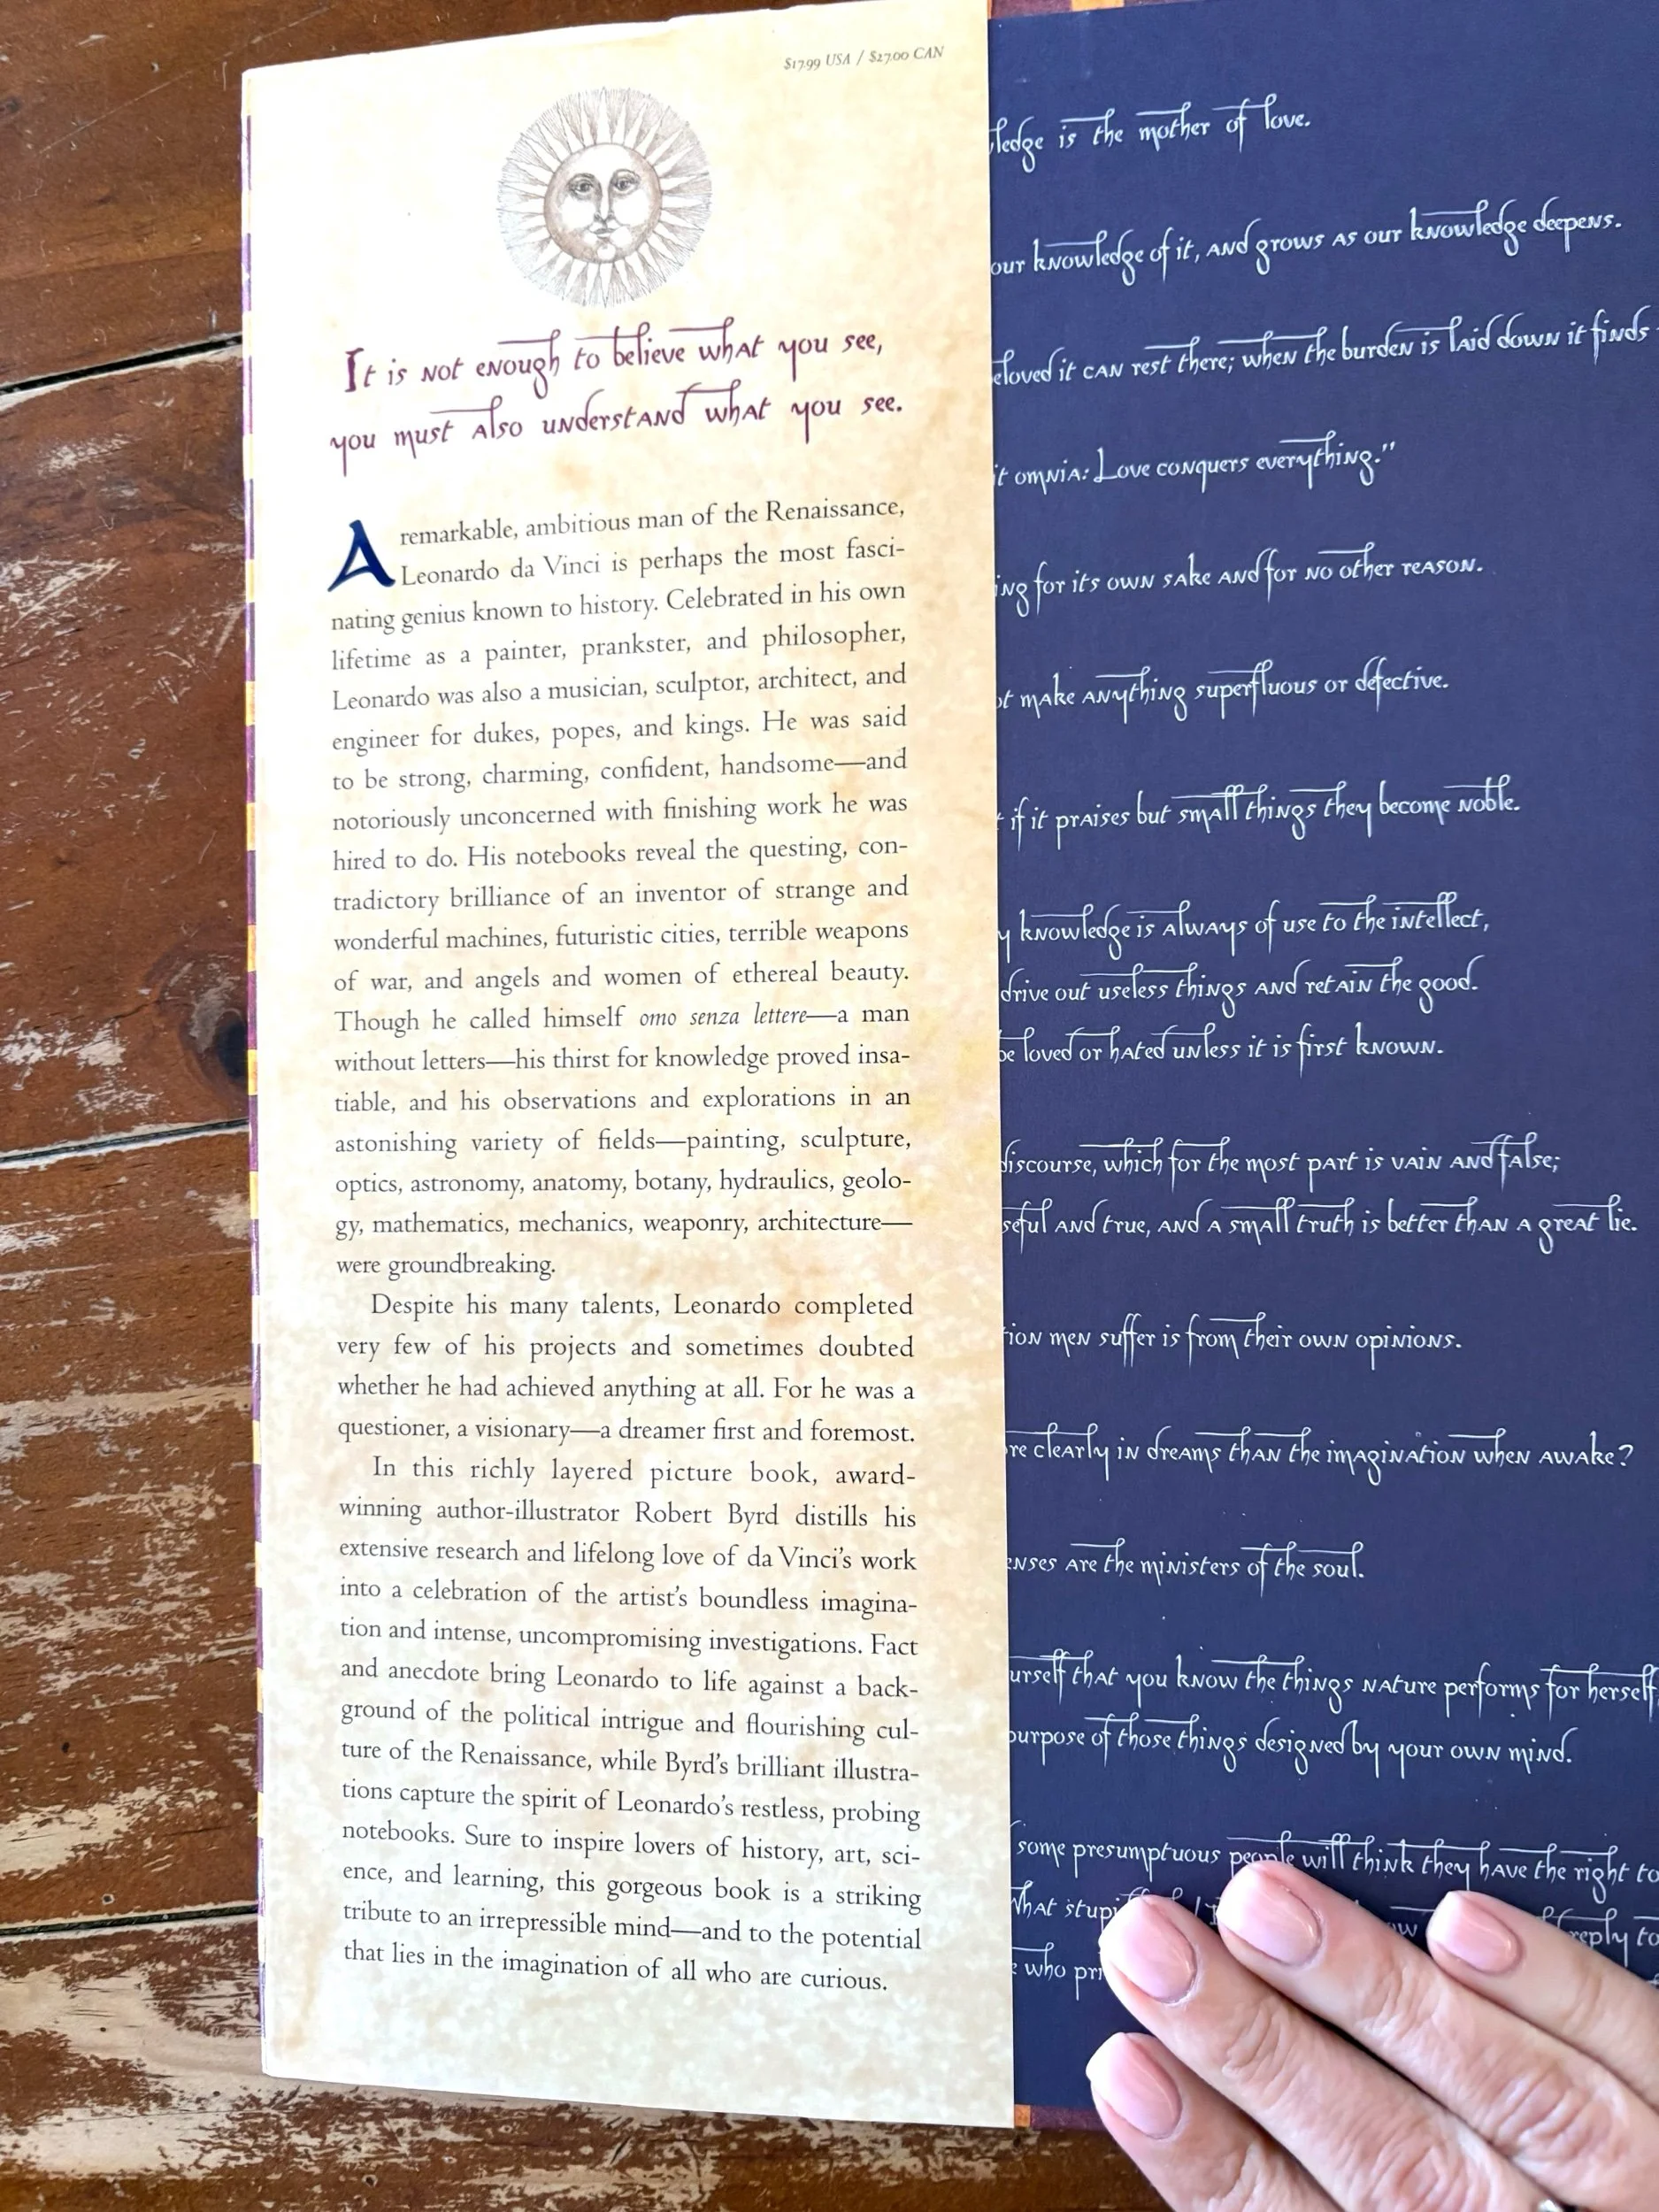 $17.99 USA / $27.00 CAN
It is not enough to believe what you see,
you must also understand what you see.
A remarkable, ambitious man of the Renaissance,
Leonardo da Vinci is perhaps the most fasci-
nating genius known to history. Celebrated in his own
lifetime as a painter, prankster, and philosopher,
Leonardo was also a musician, sculptor, architect, and
engineer for dukes, popes, and kings. He was said
to be strong, charming, confident, handsome—and
notoriously unconcerned with finishing work he was
hired to do. His notebooks reveal the questing, con-
tradictory brilliance of an inventor of strange and
wonderful machines, futuristic cities, terrible weapons
of war, and angels and women of ethereal beauty.
Though he called himself omo senza lettere—a man
without letters—his thirst for knowledge proved insa-
tiable, and his observations and explorations in an
astonishing variety of fields—painting, sculpture,
optics, astronomy, anatomy, botany, hydraulics, geolo-
gy, mathematics, mechanics, weaponry, architecture—
were groundbreaking.
Despite his many talents, Leonardo completed
very few of his projects and sometimes doubted
whether he had achieved anything at all. For he was a
questioner, a visionary—a dreamer first and foremost.
In this richly layered picture book, award-
winning author-illustrator Robert Byrd distills his
extensive research and lifelong love of da Vinci's work
into a celebration of the artist's boundless imagina-
tion and intense, uncompromising investigations. Fact
and anecdote bring Leonardo to life against a back-
ground of the political intrigue and flourishing cul-
ture of the Renaissance, while Byrd's brilliant illustra-
tions capture the spirit of Leonardo's restless, probing
notebooks. Sure to inspire lovers of history, art, sci-
ence, and learning, this gorgeous book is a striking
tribute to an irrepressible mind—and to the potential
that lies in the imagination of all who are curious.
ledge is the mother of love.
our knowledge of it, and grows as our knowledge deepens.
eloved it can rest there; when the burden is laid down it finds
it omnia: Love conquers everything."
ing for its own sake and for no other reason.
ot make anything superfluous or defective.
if it praises but small things they become noble.
y knowledge is always of use to the intellect,
drive out useless things and retain the good.
be loved or hated unless it is first known.
discourse, which for the most part is vain and false;
seful and true, and a small truth is better than a great lie.
ion men suffer is from their own opinions.
re clearly in dreams than the imagination when awake?
enses are the ministers of the soul.
urself that you know the things nature performs for herself
purpose of those things designed by your own mind.
some presumptuous people will think they have the right to
What reply to
who